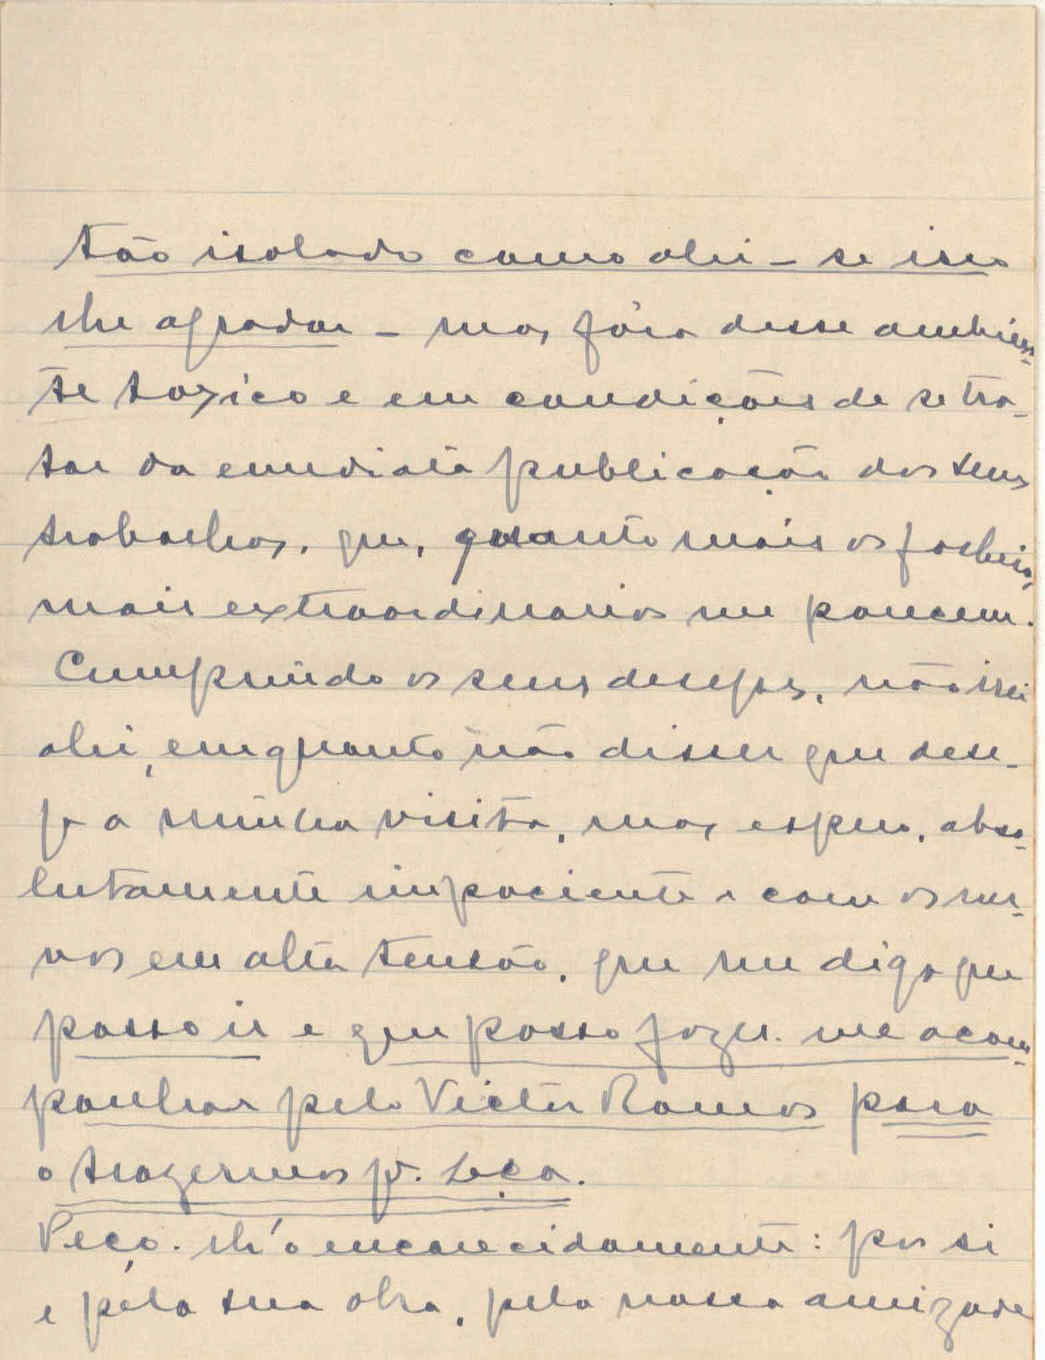 tão isolado como ahi - se isso
lhe agradar - mas fóra desse ambien-
te toxico e em condições de se tra-
tar da emediata publicação dos seus
trabalhos, que, quanto mais os folheio,
mais extraordinarios me parecem.
Cumprindo os seus desejos, não irei
ahi, emquanto não disser que dese-
ja a minha visita, mas espero, abso-
lutamente impaciente e com os ner-
vos em alta tensão, que me diga que
posso ir e que posso fazer-me acom-
panhar pelo Victor Ramos para
o trazermos p.ª Leça.
Peço-lh'o encarecidamente: por si
e pela sua obra, pela nossa amizade